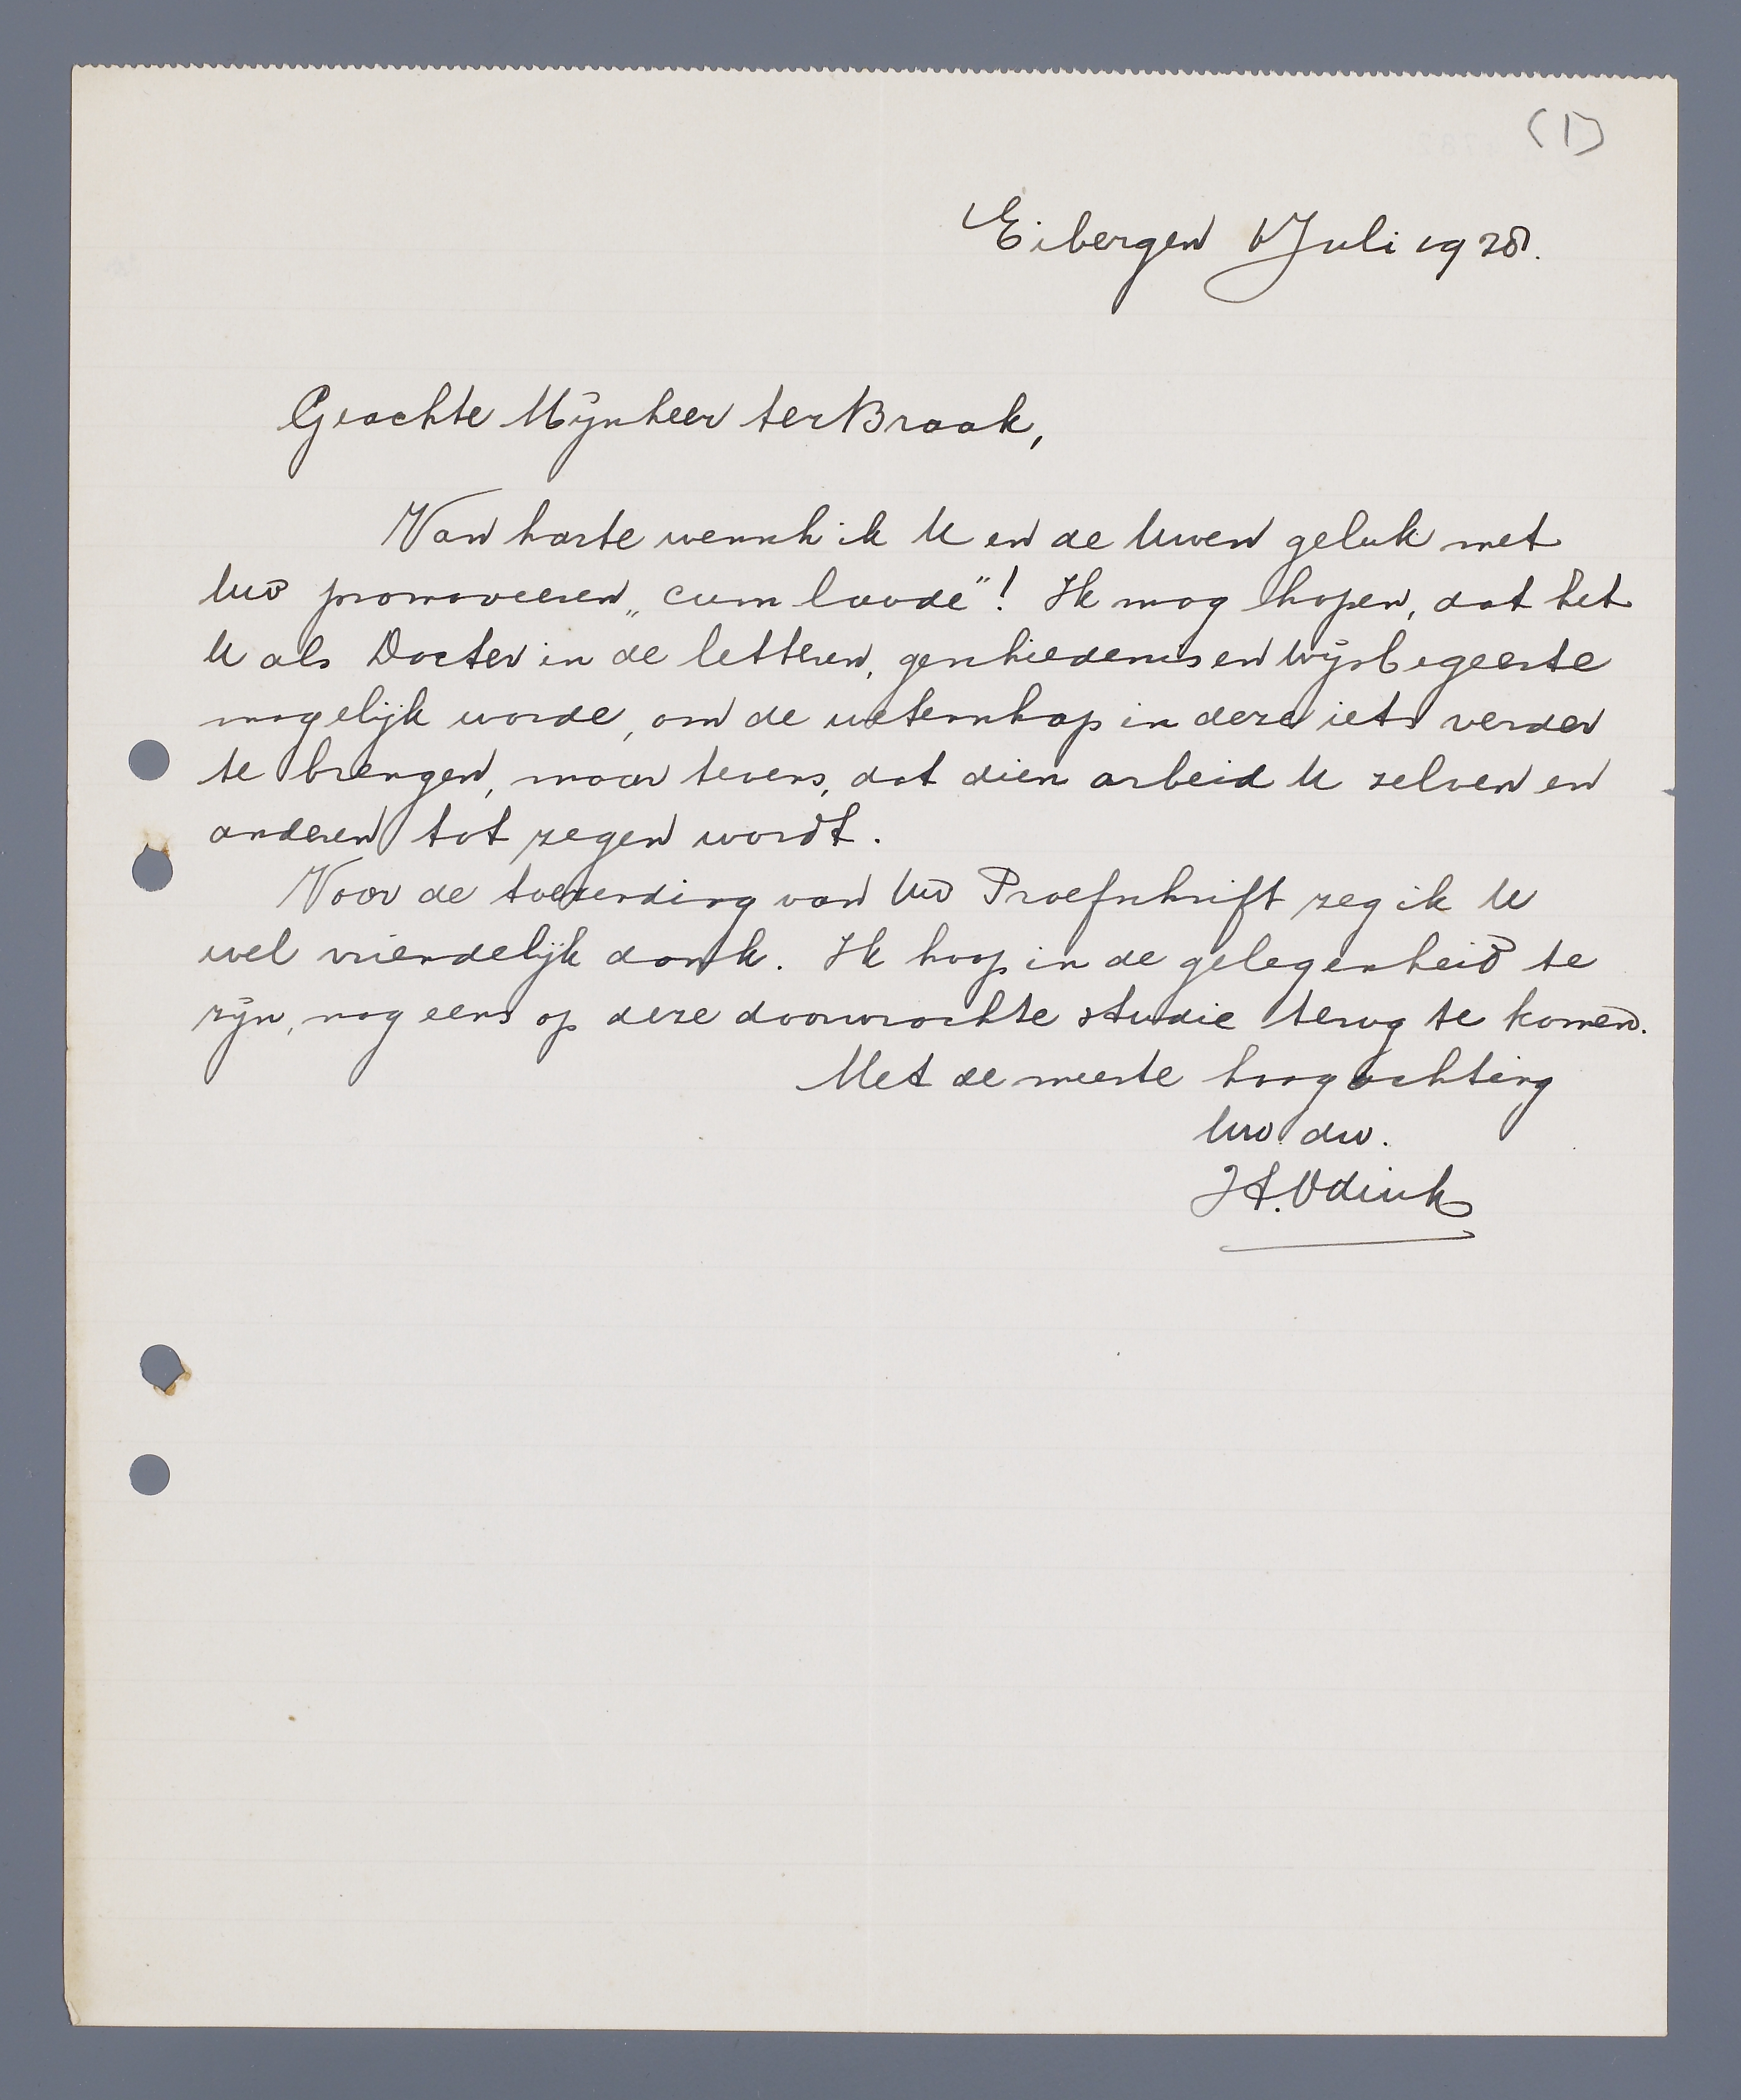 (1)
Eibergen 1 Juli 1928.
Geachte Mijnheer ter Braak,
Van harte wensch ik U en de Uwen geluk met
Uw promoveeren „cum laude"! Ik mag hopen, dat het
U als Doctor in de letteren, geschiedenis en wijsbegeerte
mogelijk worde, om de wetenschap in deze iets verder
te brengen, maar tevens, dat dien arbeid U zelven en
anderen tot zegen wordt.
Voor de toezending van Uw Proefschrift zeg ik U
wel vriendelijk dank. Ik hoop in de gelegenheid te
zijn, nog eens op deze doorwrochte studie terug te komen.
Met de meeste hoogachting
Uw. dw.
H. Odink